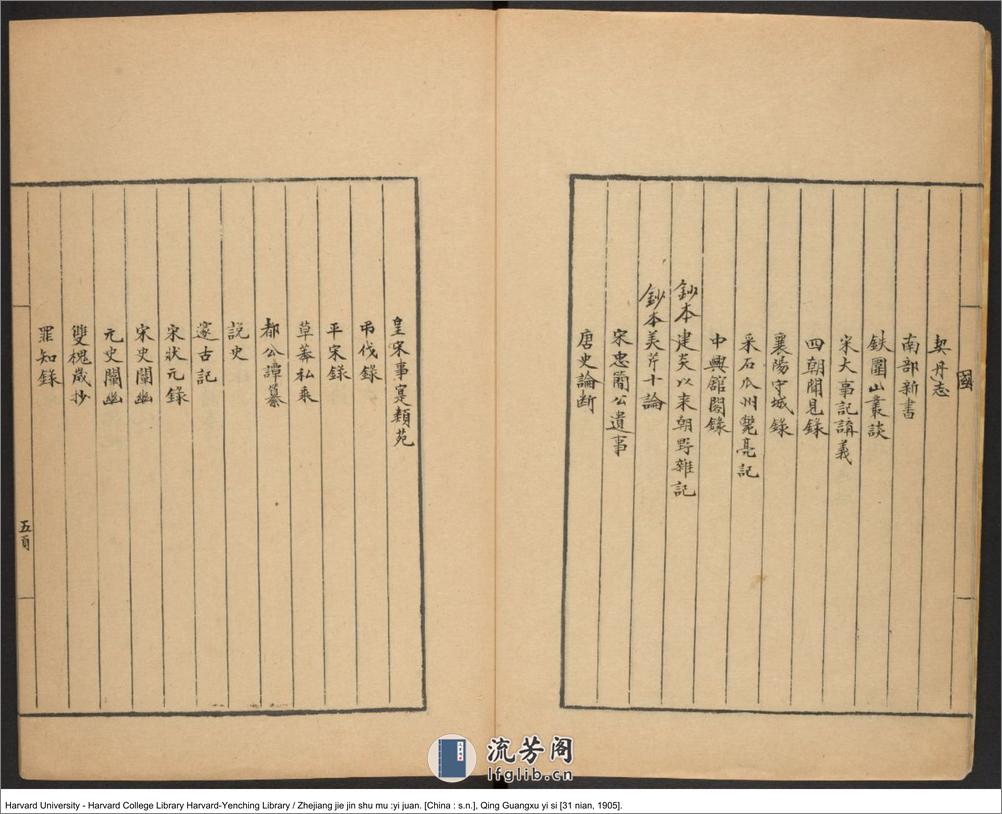 國
契丹志
南部新書
鉄圍山叢談
宋大事記講義
四朝聞見錄
襄陽守城錄
采石瓜州斃亮記
中興館閣錄
鈔本建炎以来朝野雜記
鈔本美芹十論
宋忠簡公遺事
唐史論断
皇宋事寔類苑
弔伐錄
平宋錄
草莽私乘
都公譚纂
説史
邃古記
宋狀元錄
宋史闡幽
元史闡幽
雙槐歲抄
罪知錄
五頁
流芳阁
lfglib.cn
Harvard University - Harvard College Library Harvard-Yenching Library / Zhejiang jie jin shu mu :yi juan. [China : s.n.], Qing Guangxu yi si [31 nian, 1905].